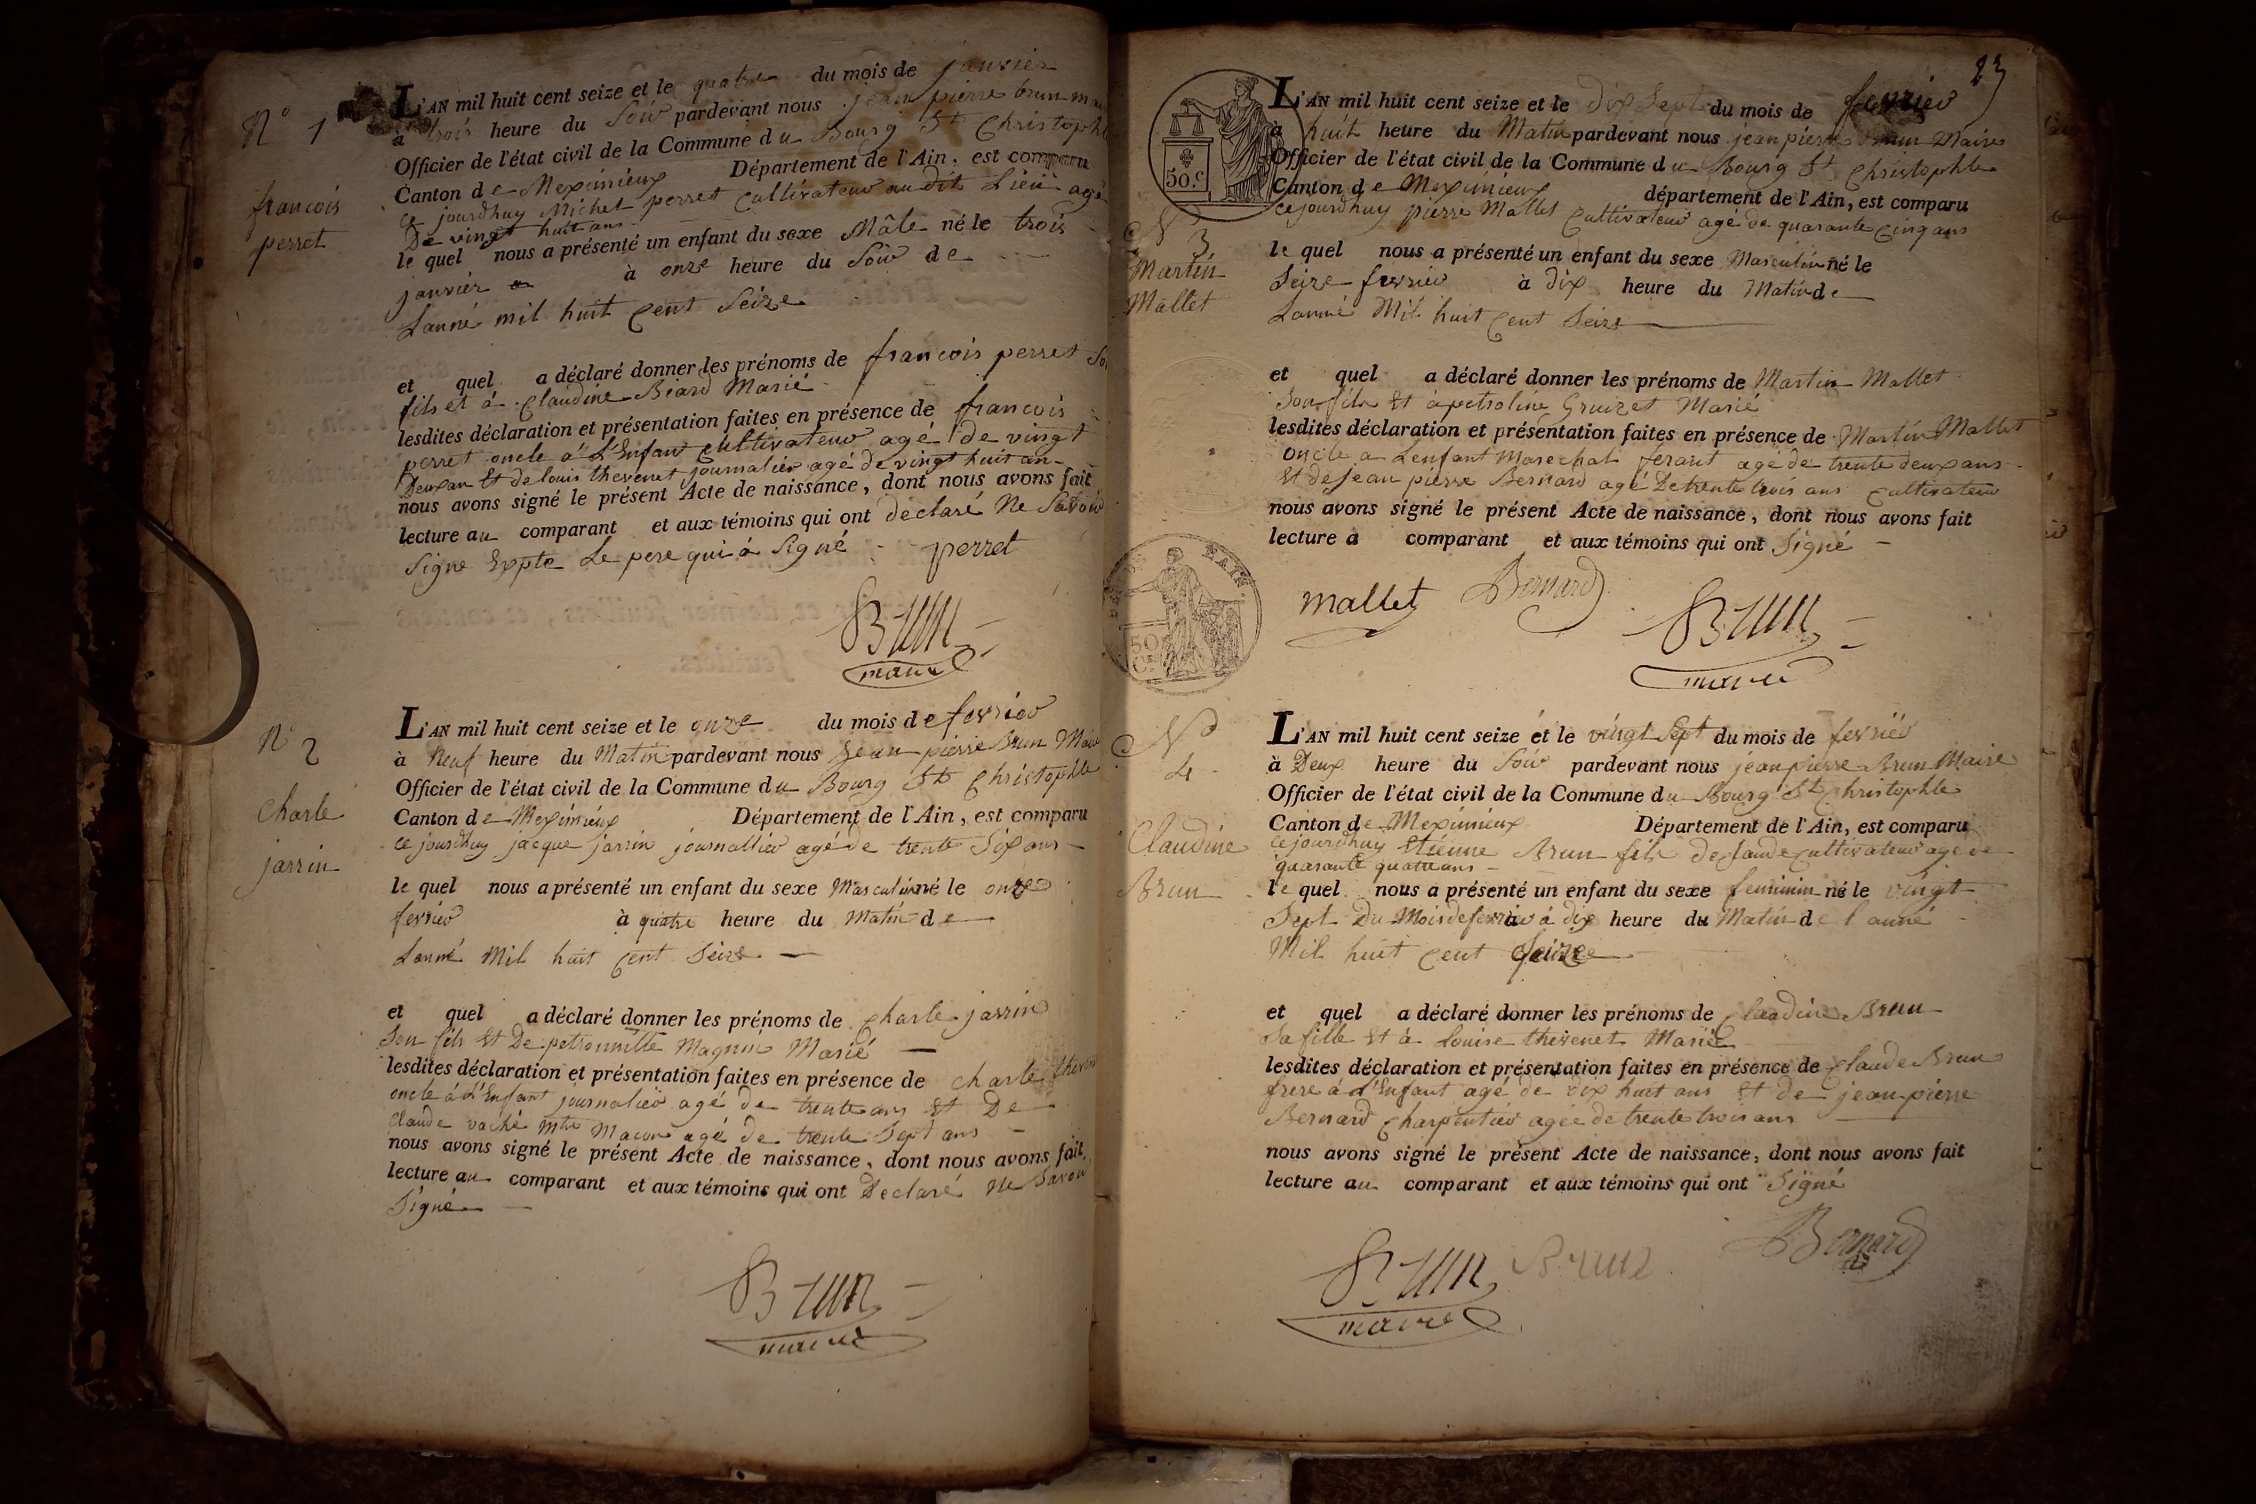 N° 1
françois
perret
L'AN mil huit cent seize et le quatre du mois de janvier
à trois heure du Soir pardevant nous jean pierre brun
Officier de l'état civil de la Commune du Bourg St Christophle
Canton de Meximieux Département de l'Ain, est comparu
ce jourdhuy Michel perret Cultivateur au dit Lieu agé
De vingt huit ans
le quel nous a présenté un enfant du sexe Mâle né le trois
janvier à onze heure du Soir de
Lanné mil huit Cent Seize
et quel a déclaré donner les prénoms de françois perret Son
fils et à Claudine Béard Marié
lesdites déclaration et présentation faites en présence de françois
perret oncle à L'Enfant Cultivateur agé de vingt
Deux an Et de louis thevenet journalier agé de vingt huit an
nous avons signé le présent Acte de naissance, dont nous avons fait
lecture au comparant et aux témoins qui ont déclaré Ne Savoir
Signe Expté Le pere qui à Signé perret
Brun
maire
N° 2
Charle
jarrin
L'AN mil huit cent seize et le onze du mois de fevrier
à Neuf heure du Matin pardevant nous Jean pierre Brun Maire
Officier de l'état civil de la Commune du Bourg St Christophle
Canton de Meximieux Département de l'Ain, est comparu
ce jourdhuy jacque jarrin journallier agé de trente Six ans
le quel nous a présenté un enfant du sexe Masculin né le onze
fevrier à quatre heure du Matin de
Lanné Mil huit Cent Seize
et quel a déclaré donner les prénoms de Charle jarrin
Son fils Et De petronnille Magnin Marié
lesdites déclaration et présentation faites en présence de charle
oncle à L'Enfant journalier agé de trente ans Et De
Claude vaché Mtre Macon agé de trente Sept ans
nous avons signé le présent Acte de naissance, dont nous avons fait
lecture au comparant et aux témoins qui ont Declaré Ne Savoir
Signé
Brun
maire
23
50.c
N 3
Martin
Mallet
L'AN mil huit cent seize et le dix Sept du mois de fevrier
à huit heure du Matin pardevant nous jean pierre Brun Maire
Officier de l'état civil de la Commune du Bourg St Christophle
Canton de Meximieux département de l'Ain, est comparu
ce jourdhuy pierre Mallet Cultivateur agé de quarante Cinq ans
le quel nous a présenté un enfant du sexe Masculin né le
Seize fevrier à dix heure du Matin de
Lanné Mil huit Cent Seize
et quel a déclaré donner les prénoms de Martin Mallet
Son fils Et à petroline Gruizet Marié
lesdites déclaration et présentation faites en présence de Martin Mallet
oncle a Lenfant Marechal ferant agé de trente deux ans
Et de jean pierre Bernard agé De trente trois ans Cultivateur
nous avons signé le présent Acte de naissance, dont nous avons fait
lecture à comparant et aux témoins qui ont Signé
mallet Bernard Brun
maire
50
N° 4
Claudine
Brun
L'AN mil huit cent seize et le vingt Sept du mois de fevrier
à Deux heure du Soir pardevant nous jean pierre Brun Maire
Officier de l'état civil de la Commune du Bourg St Christophle
Canton de Meximieux Département de l'Ain, est comparu
ce jourdhuy Etienne Brun fils de Claude Cultivateur agé de
quarante quatre ans
le quel nous a présenté un enfant du sexe feminin né le vingt
Sept Du Mois de fevrier à dix heure du Matin de l'anné
Mil huit Cent Seize
et quel a déclaré donner les prénoms de Claudine Brun
Sa fille Et à Louise thevenet Marié
lesdites déclaration et présentation faites en présence de Claude Brun
frere à L'Enfant agé de dix huit ans Et de jean pierre
Bernard Charpentier agée de trente trois ans
nous avons signé le présent Acte de naissance, dont nous avons fait
lecture au comparant et aux témoins qui ont Signé
Brun Brun Bernard
maire